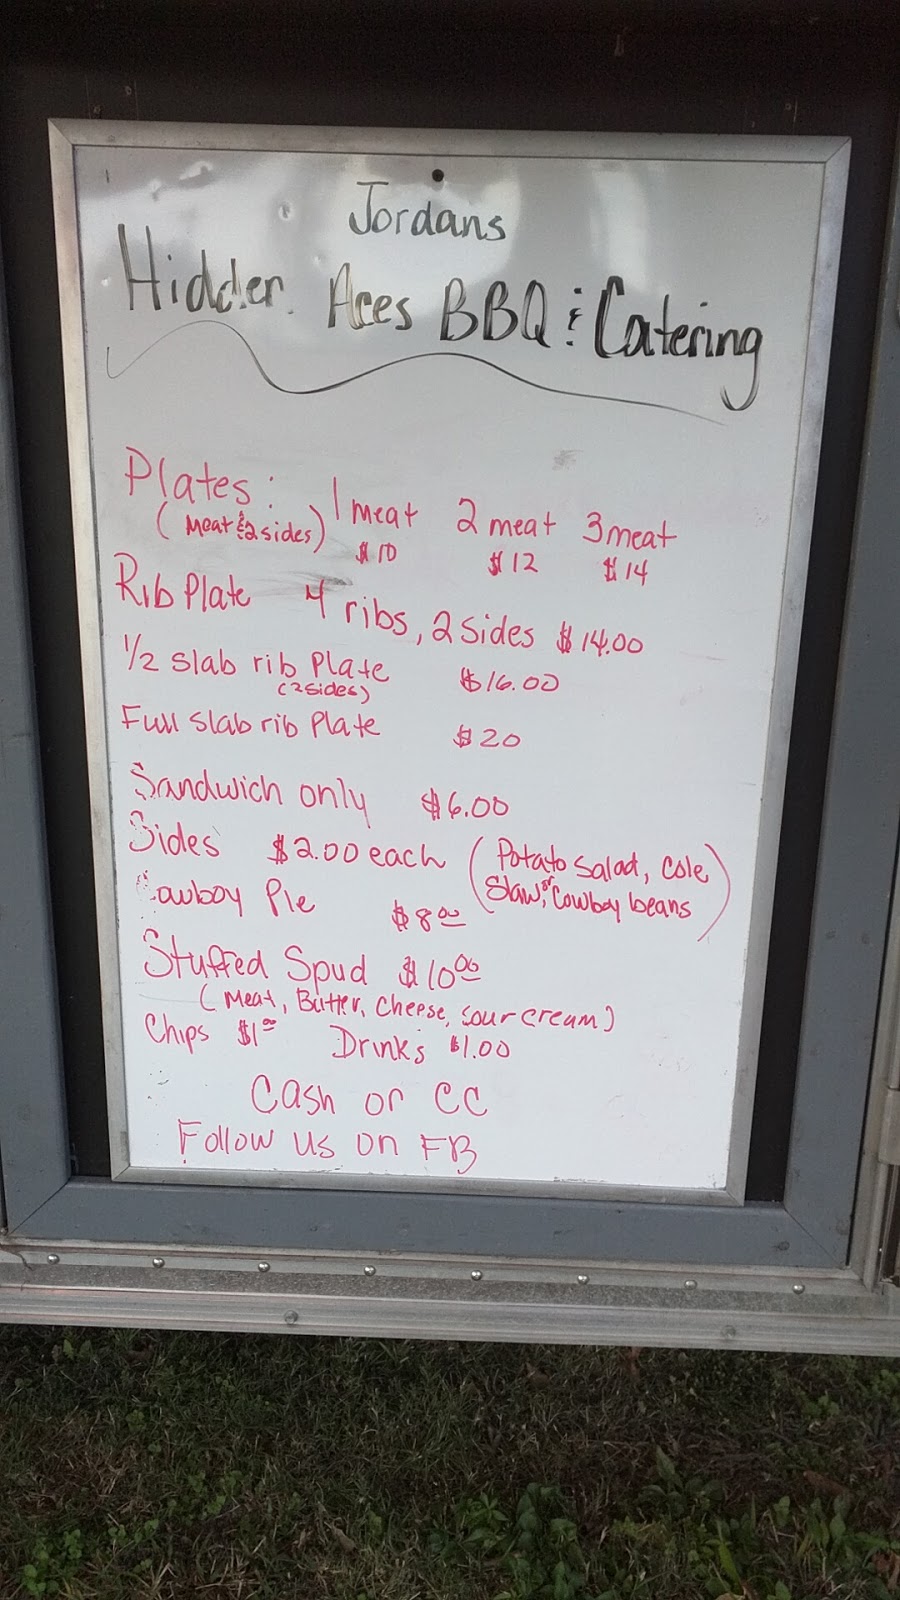 Jordans
Hidden Aces BBQ & Catering
Plates: 1 meat 2 meat 3 meat
(Meat & 2 sides) $10 $12 $14
Rib Plate 4 ribs, 2 sides $14.00
1/2 slab rib Plate $16.00
(2 sides)
Full slab rib Plate $20
Sandwich only $6.00
Sides $2.00 each (Potato Salad, Cole
Slaw, or Cowboy beans)
Cowboy Pie $8.00
Stuffed Spud $10.00
(Meat, Butter, Cheese, sour cream)
Chips $1.00 Drinks $1.00
Cash or CC
Follow us on FB